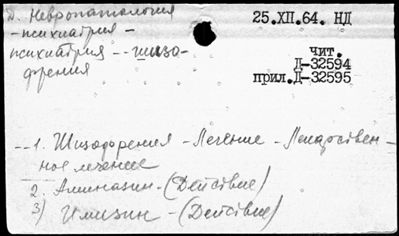 Д. Невропатология
- психиатрия -
психиатрия -- шизо-
френия
25.XII.64. НД
чит.
Д-32594
прил.Д-32595
--1. Шизофрения - Лечение - Лекарствен-
ное лечение
2. Аминазин - (Действие)
3) Имизин - (Действие)